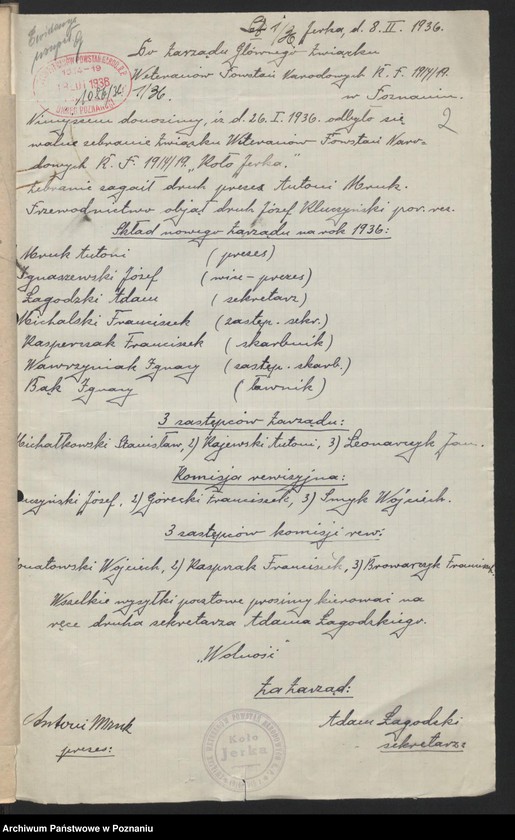 Ewidencja
1914-19
19 LUT 1936
1086/36
ZARZĄD POZNAŃ
Jerka, d. 8. II. 1936.
Do Zarządu Głównego Związku
Weteranów Powstań Narodowych R. P. 1914/19.
1/36.
w Poznaniu.
2
Niniejszem donosimy, iż d. 26. I. 1936. odbyło się
walne zebranie Związku Weteranów Powstań Naro-
dowych R. P. 1914/19. "Koło Jerka."
Zebranie zagaił druh prezes Antoni Mruk.
Przewodnictwo objął druh Józef Kluczyński por. rez.
Skład nowego Zarządu na rok 1936:
Mruk Antoni (prezes)
Ignaszewski Józef (wice-prezes)
Łagodzki Adam (sekretarz)
Michalski Franciszek (zastęp. sekr.)
Kasperczak Franciszek (skarbnik)
Wawrzyniak Ignacy (zastęp. skarb.)
Bąk Ignacy (ławnik)
3 zastępców Zarządu:
Michałkowski Stanisław, 2) Rajewski Antoni, 3) Leonarczyk Jan.
Komisja rewizyjna:
uczyński Józef, 2) Górecki Franciszek, 3) Smyk Wojciech.
3 zastępców komisji rew:
oniatowski Wojciech, 2) Kasprzak Franciszek, 3) Browarczyk Franciszek
Wszelkie wysyłki pocztowe prosimy kierować na
ręce druha sekretarza Adama Łagodzkiego.
"Wolność"
Za Zarząd:
Antoni Mruk
prezes:
Koło
Jerka
Adam Łagodzki
sekretarz:
Archiwum Państwowe w Poznaniu